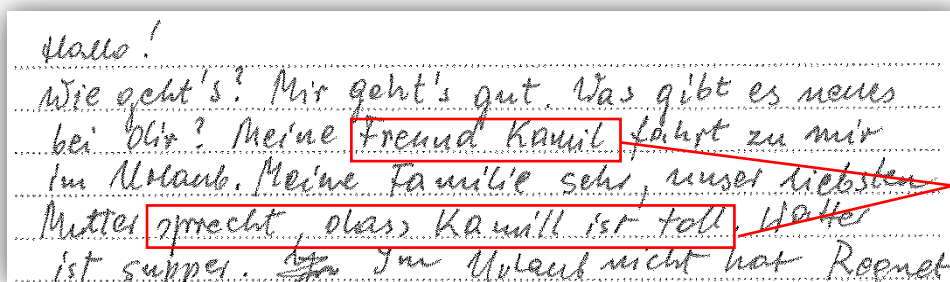 Hallo!
Wie geht's? Mir geht's gut. Was gibt es neues
bei Dir? Meine Freund Kamil fahrt zu mir
im Urlaub. Meine Familie sehr, unser liebsten
Mutter sprecht, dass Kamill ist toll. Watter
ist supper. Im Urlaub nicht hat Regnet